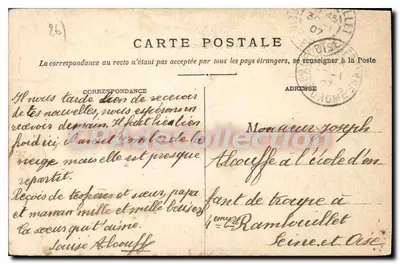 26)
CARTE POSTALE
La correspondance au recto n'étant pas acceptée par tous les pays étrangers, se renseigner à la Poste
CORRESPONDANCE
ADRESSE
Il nous tarde bien de recevoir
de tes nouvelles, nous espérons en
recevoir demain. Il fait bien bien
froid ici, il avait tombé de la
neige mais elle est presque
repartit.
Reçois de tes frères et sœur, papa
et maman mille et mille baisers
ta sœur qui t'aime.
Louise Alcouffe
Monsieur Joseph
Alcouffe à l'école d'en
fant de troupe à
Rambouillet
Seine et Oise